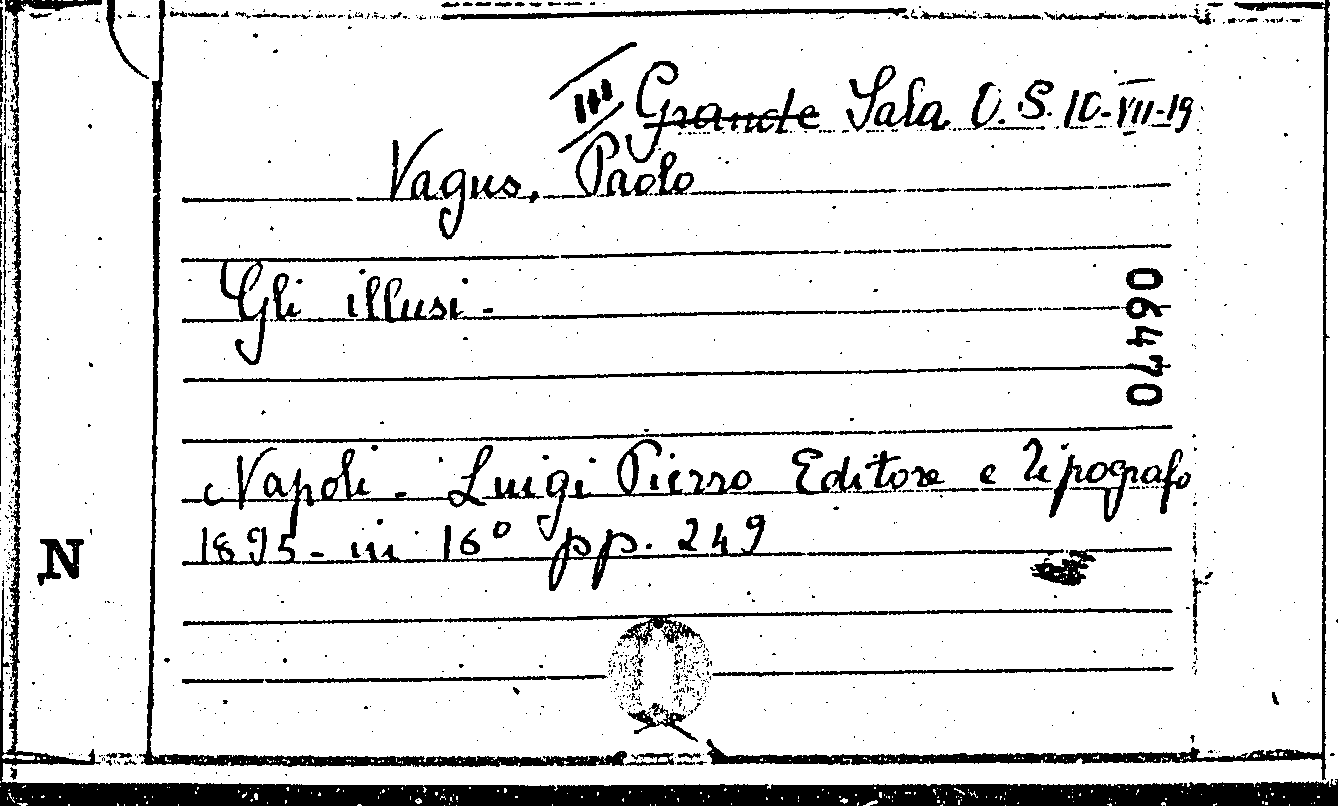 III Grande Sala O.S. 10-VII-19
Vagus, Paolo
Gli illusi-
06470
Napoli - Luigi Pierro Editore e Tipografo
1895- in 16° pp. 249
N